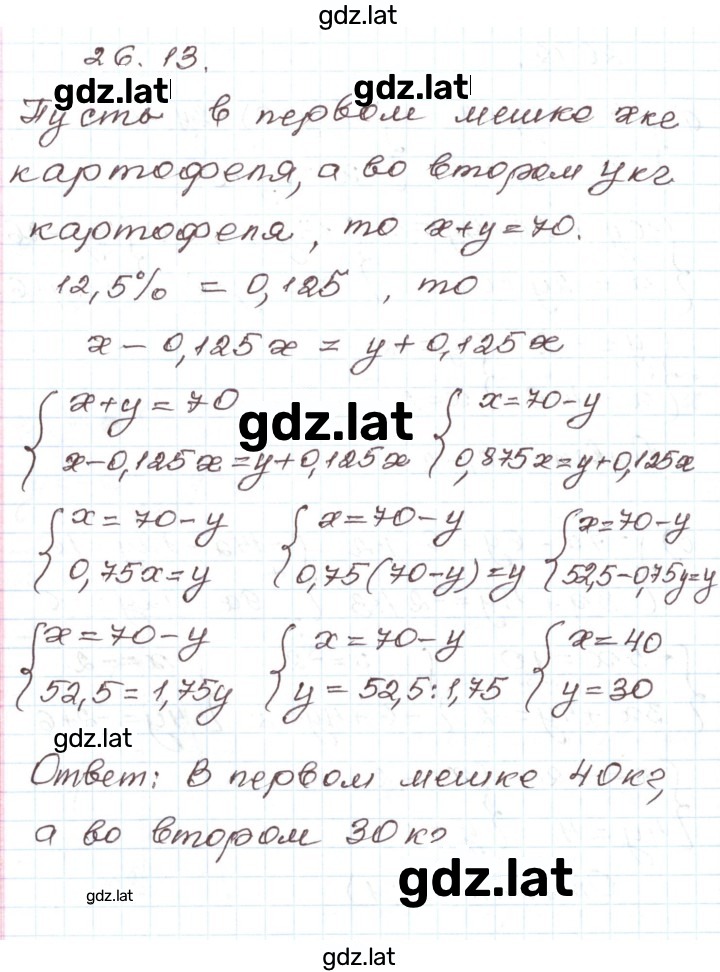 gdz.lat
26.13.
gdz.lat gdz.lat
Пусть в первом мешке x кг
картофеля, а во втором y кг
картофеля, то x+y=70.
12,5% = 0,125 , то
x - 0,125x = y + 0,125x
{ x+y=70 gdz.lat { x=70-y
{ x-0,125x=y+0,125x { 0,875x=y+0,125x
{ x=70-y { x=70-y { x=70-y
{ 0,75x=y { 0,75(70-y)=y { 52,5-0,75y=y
{ x=70-y { x=70-y { x=40
{ 52,5=1,75y { y=52,5:1,75 { y=30
gdz.lat
Ответ: в первом мешке 40кг,
а во втором 30кг
gdz.lat gdz.lat
gdz.lat